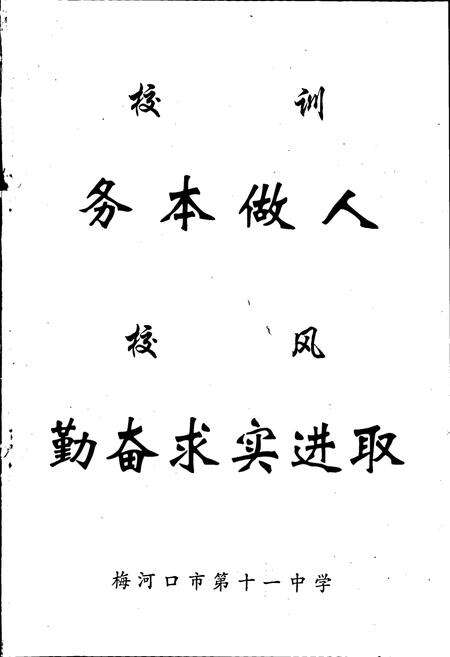 校训
务本做人
校风
勤奋求实进取
梅河口市第十一中学